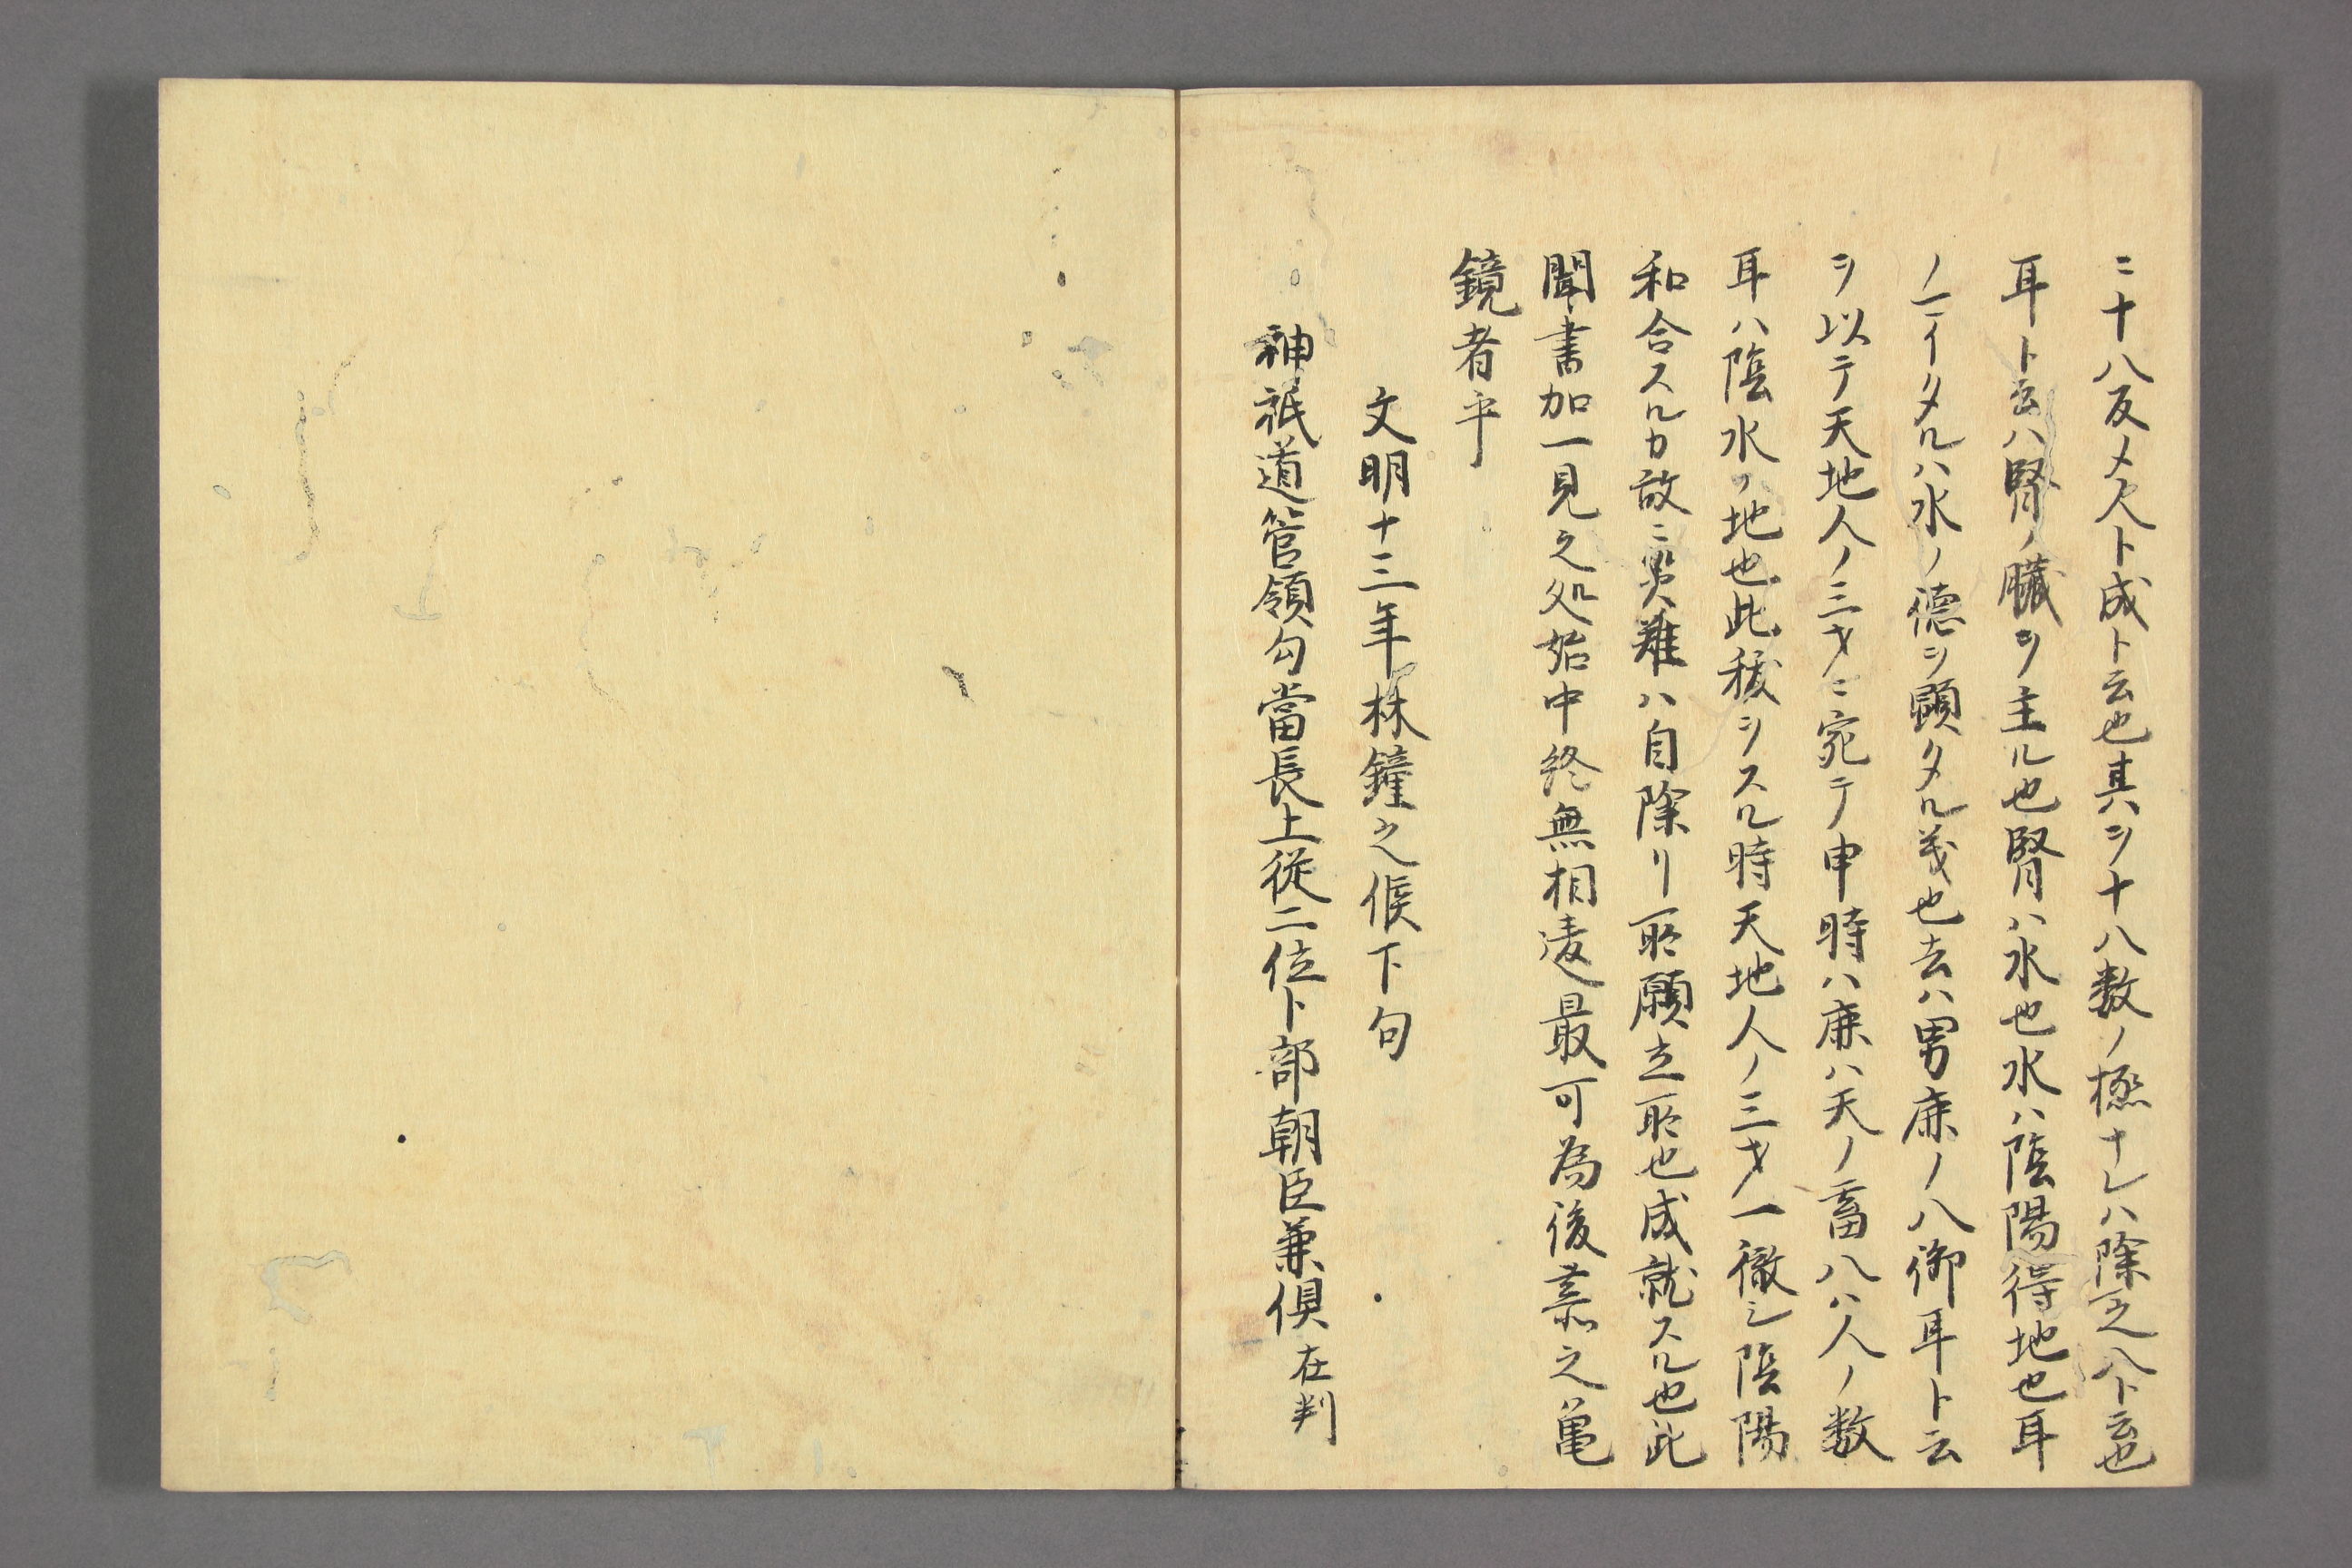 ニ十八反メ人ト成ト云也其ヲ十八数ノ極ナレハ除之八ト云也
耳ト云ハ腎ノ臓ヲ主ル也腎ハ水也水ハ陰陽得地也耳
ノニイタルハ水ノ徳ヲ顕タル義也去ハ男鹿ノ八御耳ト云
ヲ以テ天地人ノ三才ニ宛テ申時ハ鹿ハ天ノ畜八ハ人ノ数
耳ハ陰水ノ地也此祓ヲスル時天地人ノ三才一徹シ陰陽
和合スルカ故ニ災難ハ自除リ所願立所也成就スル也此
聞書加一見之処始中終無相違最可為後慕之亀
鏡者乎
文明十三年林鐘之候下旬
神祇道管領勾當長上従二位卜部朝臣兼倶 在判